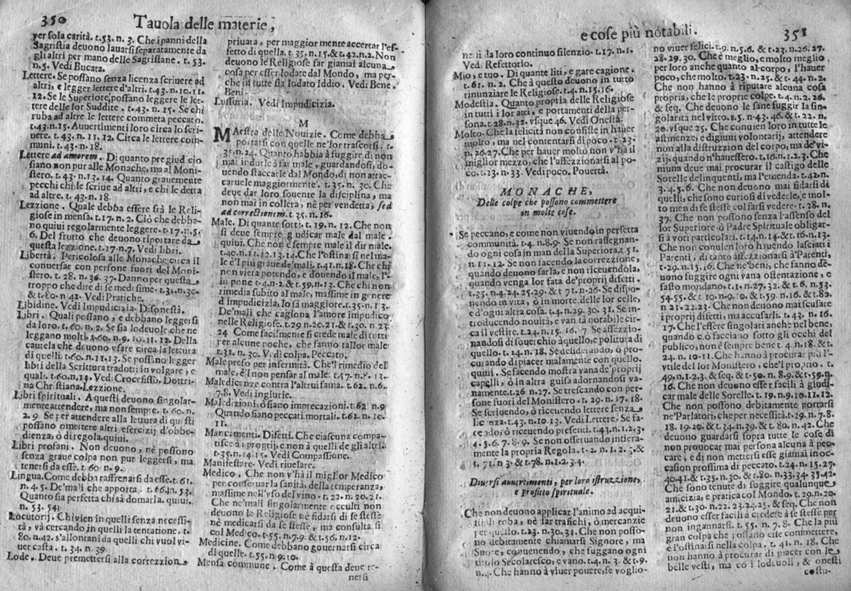 350 Tauola delle materie,
per sola carità. t.53. n. 3. Che i panni della
Sagristia deuono lauarsi separatamente da
gli altri per mano delle Sagristane. t. 53.
n.5. Vedi Bucata.
Lettere. Se possano senza licenza scriuere ad
altri, e legger lettere d'altri. t.43. n. 10. 11.
12. Se le Superiore possano leggere le let-
tere delle lor Suddite. t. 43. n. 15. Se chi
ruba ad altre le lettere commeta peccato.
t.43.n.15. Auuertimenti loro circa lo scri-
uere. t. 43. n. 11. 12. Circa le lettere com-
muni. t.43. n.18.
Lettere ad amorem. Di quanto pregiudicio
siano non pur alle Monache, ma al Moni-
stero. t. 43. n.13. 14. Quanto grauemente
pecchi chi le scriue ad altri, e chi le detta
ad altre. t.43. n. 18.
Lezzione. Quale debba essere frà le Reli-
giose in mensa. t.17. n. 2. Ciò che debba-
no quiui regolarmente leggere. t.17. n. 5.
6. Del frutto che deuono riportare da
questa lezzione. t.17. n.7. Vedi libri.
Libertà. Pericolosa alle Monache circa il
conuersar con persone fuori del Moni-
stero. t. 28. n. 36. 37. Danno per questa
troppo che dire di se medesime. t.31. n.30.
& t.60. n.42. Vedi Pratiche.
Libidine. Vedi Impudicizia. Disonestà.
Libri. Quali possano, e debbano leggersi
da loro. t. 60. n. 2. Se sia lodeuole che ne
leggano molti. t.60. n.9. 10. 11. 12. Della
cautela che deuono vsare circa la lettura
di quelli. t.60. n.11.13. Se possano legger
libri della Scrittura tradotti in volgare; e
quali. t.60.n.14. Vedi Crocefisso. Dottri-
na Christiana. Lezzione.
Libri spirituali. A questi deuono singolar-
mente attendere, ma non sempre. t. 60. n.
2. 9. Se per attendere alla lettura di questi
possano omettere altri esercizij d'obbe-
dienza, ò di regola. quiui.
Libri profani. Non deuono, nè possono
senza graue colpa non pur leggersi, ma
tenersi da esse. t. 60. n. 9.
Lingua. Come debba raffrenarsi da esse. t.61.
n. 4. 5. De' mali che apporta. t. 61. n. 53.
Quanto sia perfetta chi sà domarla. quiui.
n. 53. 54.
Locutorij. Chi vien in quelli senza necessi-
tà, và cercando in quelli la tentatione. t.
80. n.42. s'allontani da quelli chi vuol vi-
uer casta. t. 34. n. 39
Lode. Deue premettersi alla correzzion-
priuata, per maggiormente accertar l'ef-
fetto di quella. t.35. n.15. & t.42. n.2. Non
deuono le Religiose far giamai alcuna
cosa per esser lodate dal Mondo, ma per-
che in tutte sia lodato Iddio. Vedi Bene.
Beni.
Lussuria. Vedi Impudicizia.
M
Maestra delle Nouizie. Come debba
portarsi con quelle ne'lor trascorsi. t.
31. n.24. Quanto habbia à fuggire di non
mai indurle à far male, guardandosi, do-
uendo staccarle dal Mondo, di non attac-
caruele maggiormente. t. 35. n. 30. Che
deue dar loro souente la disciplina, ma
non mai in collera, nè per vendetta, sed
ad correctionem. t. 35. n. 16.
Male. Di quante sorti. t. 19. n. 12. Che non
si deue sempre giudicar male dal male.
quiui. Che non è sempre male il dir male.
t.40. n.11. 12. 13. 14. Che l'ostinarsi nel ma-
le è'l più graue de' mali. t.41. n.18. Che chi
non vieta potendo, e douendo il male, l'im-
pone. t.4. n.2. & t.59. n.13. Che chi non
rimedia subito al male, massime in genere
d'Impudicizia, lo fà maggiore. t. 25. n. 13.
De' mali che cagiona l'amore impudico
nelle Religiose. t. 29. n. 20. 21. & t.30. n. 23
24 Come facilmente si crede mal di tutte
per alcune poche, che fanno tallor male.
t.31. n. 30. V. di colpa. Peccato.
Male preso per infermità. Che'l rimedio del
male, è'l non pensar al male. t.57. n.8. 13.
Maledicenze contra l'altrui fama. t.62. n.6.
7.8. Vedi ingiurie.
Maledizzioni, ò siano imprecazioni. t.62 n.9
Quando siano peccati mortali. t.62. n. 10.
11.
Mancamenti. Difetti. Che ciascuna compa-
tisce à i proprij, e non à quelli de gli altri.
t.35. n.14. 15. Vedi Compassione.
Manifestare. Vedi riuelare.
Medico. Che non v'hà il miglior Medico
per conseruar la sanità, della temperanza,
massime nell'vso del vino. t. 22. n. 20. 21.
Che ne' mali singolarmente occulti non
deuono le Religiose nè fidarsi di se stesse
nè medicarsi da se stesse, mà consulta si
col Medico. t.55. n. 7. 9. & t.56. n. 12.
Medicine. Come debbano gouernarsi circa
di quelle. t. 55. n. 9. 10.
Mensa commune. Come à questa deue te-
nersi
e cose più notabili. 351
nersi da loro continuo silenzio. t.17. n.1.
Vedi Refettorio.
Mio, e tuo. Di quante liti, e gare cagione.
t. 61. n. 2. Che à questo deuono in tutto
rinunziare le Religiose. t.4. n. 15. 16.
Modestia. Quanto propria delle Religiose
in tutti i lor atti, e portamenti della per-
sona. t.28. n.42. vsque 46. Vedi Onestà.
Molto. Che la felicità non consiste in hauer
molto, ma nel contentarsi di poco. t. 23.
n. 26. 27. Che per hauer molto non v'hà il
miglior mezzo, che l'affezzionarsi al po-
co. t. 23. n. 33. Vedi poco. Pouertà.
MONACHE,
Delle colpe che possono commettere
in molte cose.
Se peccano, e come non viuendo in perfetta
communità. t.4. n.8.9. Se non rassegnan-
do ogni cosa in man della Superiora. t. 5.
n. 12. Se non facendo la correzzione,
quando deuono farla, e non riceuendola,
quando venga lor fatta de' proprij difetti.
t.35. n.4. 24. 25. 29. & t. 71. n. 26. Se dispo-
nendo in vita, ò in morte delle lor celle,
e d'ogni altra cosa. t.4. n.29. 30. 31. Se in-
troducendo nouità, e vanità notabile cir-
ca il vestire. t.24. n. 15. 16. 7. Se affezzio-
nandosi di souerchio à quello, e politura di
quello. t. 24. n. 18. Se desiderando, ò pro-
curando di piacer malamente con quello
quiui. Se facendo mostra vana de' proprij
capelli, ò in altra guisa adornandosi va-
namente. t.26. n. 17. Se trescando con per-
sone fuori del Monistero. t. 29. n. 17. 18.
Se scriuendo, ò riceuendo lettere senza
licenza. t.43. n.10. 13. Vedi Lettere. Se fa-
cendo, ò riceuendo presenti. t.43. n.1. 2. 3.
4. 5. 6. 7. 8. 9. Se non osseruando intiera-
mente la propria Regola. t.2. n.1. 2. 3. &
t. 71. n. 3. & t.78. n.1. 2. 3. 4.
Diuersi auuertimenti, per loro istruzzione,
e profitto spirituale.
Che non deuono applicar l'animo ad acqui-
star robba, nè far trafichi, ò mercanzie
per quello. t.23. n.30. 31. Che non posso-
no debitamente chiamarsi Signore, ma
Suore; conuenendo, che fuggano ogni
titolo Secolaresco, e vano. t.4. n. 3. & t.9.
n. Che hanno à viuer pouere, se voglio-
no viuer felici. t.9. n. 5. 6. & t. 23. n. 26. 27.
28. 29. 30. Che è meglio, e molto meglio
per loro anche quanto al corpo, l'hauer
poco, che molto. t.23. n. 25. & t. 44. n. 2.
Che non hanno à riputar alcuna cosa
propria, che le proprie colpe. t.4. n. 2. 26.
& seq. Che deuono le sane fuggir la sin-
golarità nel vitto. t.5. n. 43. 46. & t. 22. n.
26. vsque 25. Che con i lor in tutte le lor
astinenze, e digiuni volontarij, attendere
non alla distruzzione del corpo, ma de' vi-
zij. quando n'hauessero. t. 16. n. 1. 2. 3. Che
niuna deue mai procurar il castigo delle
Sorelle delinquenti, ma l'emenda. t.42. n.
3. 4. 5. 6. Che non deuono mai fidarsi di
quelli, che sono curiosi di vederle, e mol-
to meno di se stesse col farsi vedere. t.28. n.
37. Che non possono senza l'assenso del
lor Superiore, ò Padre Spirituale obligar-
si à voti particolari. t.14. n. 14. & t. 55. n. 14.
Che non conuien loro hauendo lasciati i
Parenti, di tanto affezzionarsi à' Parenti.
t.29. n. 15. 16. Che ne' beni, che fanno de-
uono fuggire ogni vana ostentazione, e
fasto mondano. t.1. n. 27. 32. & t. 6. n. 53.
54. 55. & t. 10. n. 9. 10. & t. 59. n. 16. & t.82.
n. 21. 22. 23. Che non deuono mai scusare
i proprij difetti, ma accusarli. t.43. n. 16.
17. Che l'essere singolari anche nel bene,
quando ciò facciano sotto gli occhi del
publico, non è sempre bene. t. 4. n. 18. &
t. 24. n. 10. 11. Che hanno à procurar più l'v-
tile del lor Monistero, che'l proprio. t.
49. n. 1. 2. 3. & seq. & t. 50. n. 8. 9. & t. 59. n.
16. Che non deuono esser facili à giudi-
car male delle Sorelle. t. 19. n. 9. 10. 11. 12.
Che non possono debitamente portarsi
ne' Parlatorij, che per necessità. t.29. n. 7. 8.
18. 19. 20. & t.34. n. 39. & t. 80. n. 42. Che
deuono guardarsi sopra tutte le cose di
non prouocar mai persona alcuna à pec-
care, e di non mettersi esse giamai in oc-
casion prossima di peccato. t. 24. n. 15. 27.
40. 41. & t. 35. n. 30. & t. 80. n. 33. 34. 35. 42.
Che sono tenute di fuggire qualunque
amicizia, e pratica col Mondo. t. 29. n. 20.
21. & t. 30. n. 22. 23. 24. 25. & seq. Che non
deuono esser facili à credere à se stesse per
non ingannarsi. t. 55. n. 7. 8. Che la più
gran colpa che possano esse commettere,
è l'ostinarsi nella colpa. t. 41. n. 18. Che
non hanno à procurar di piacer con le
belle vesti, ma co i lodeuoli, & onesti
costu-